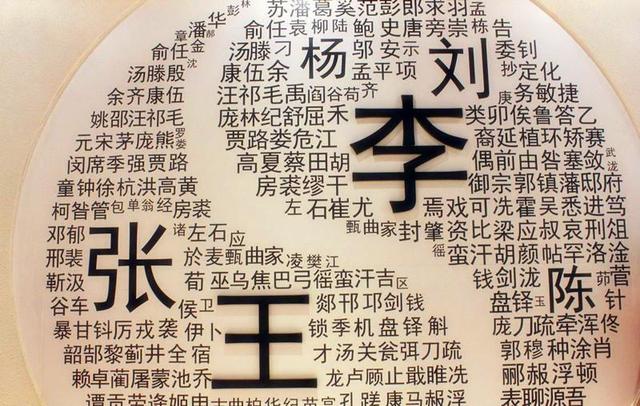 苏潘葛奚范彭郎求羽孟
潘华彭林
俞任袁柳陆鲍史唐旁崇栋告
俞任章金
汤滕刁
杨
邬安示南
刘
委钊
汤滕殷沈
康伍余
孟平项
抄定化
余齐康伍
汪祁毛禹阎谷荀齐
庚务敏捷
姚邵汪祁毛
庞林纪舒屈禾
李
类卯俟鲁答乙
元宋茅庞熊罗娄
贾路娄危江
裔延植环矫赛
闵席季强贾路
高夏蔡田胡
偶前由昝塞敛武泷
童钟徐杭洪高黄
房裘缪干
御宗郭镇藩邸府
柯昝管包单翁经房裘
左石崔尤
焉戏可冼霍吴悉进笃
邓郁
诸左石应
甄曲家封肇资比梁应叔哀刑俎
邢裴
张
於麦甄曲家凌樊江
徭蛮汗胡颜帖罕洛淦
靳汲
荀巫乌焦巴弓徭蛮汗吉区
钱剑泷
陈
茆菅
谷车
侯卫
王
郯邗邛剑钱
盘铎玉
针
暴甘钭厉戎袭伊卜
锁季机盘铎斛
庞刀疏牵浑佟
韶郜黎蓟井全宿
才汤关瓮弭刀疏
郭穆种涂肖
赖卓蔺屠蒙池乔
龙卢顾止戢睢冼
郦郝浮顿
谭贡劳逄姬申
孔蹉康马郝浮
表聊源吾